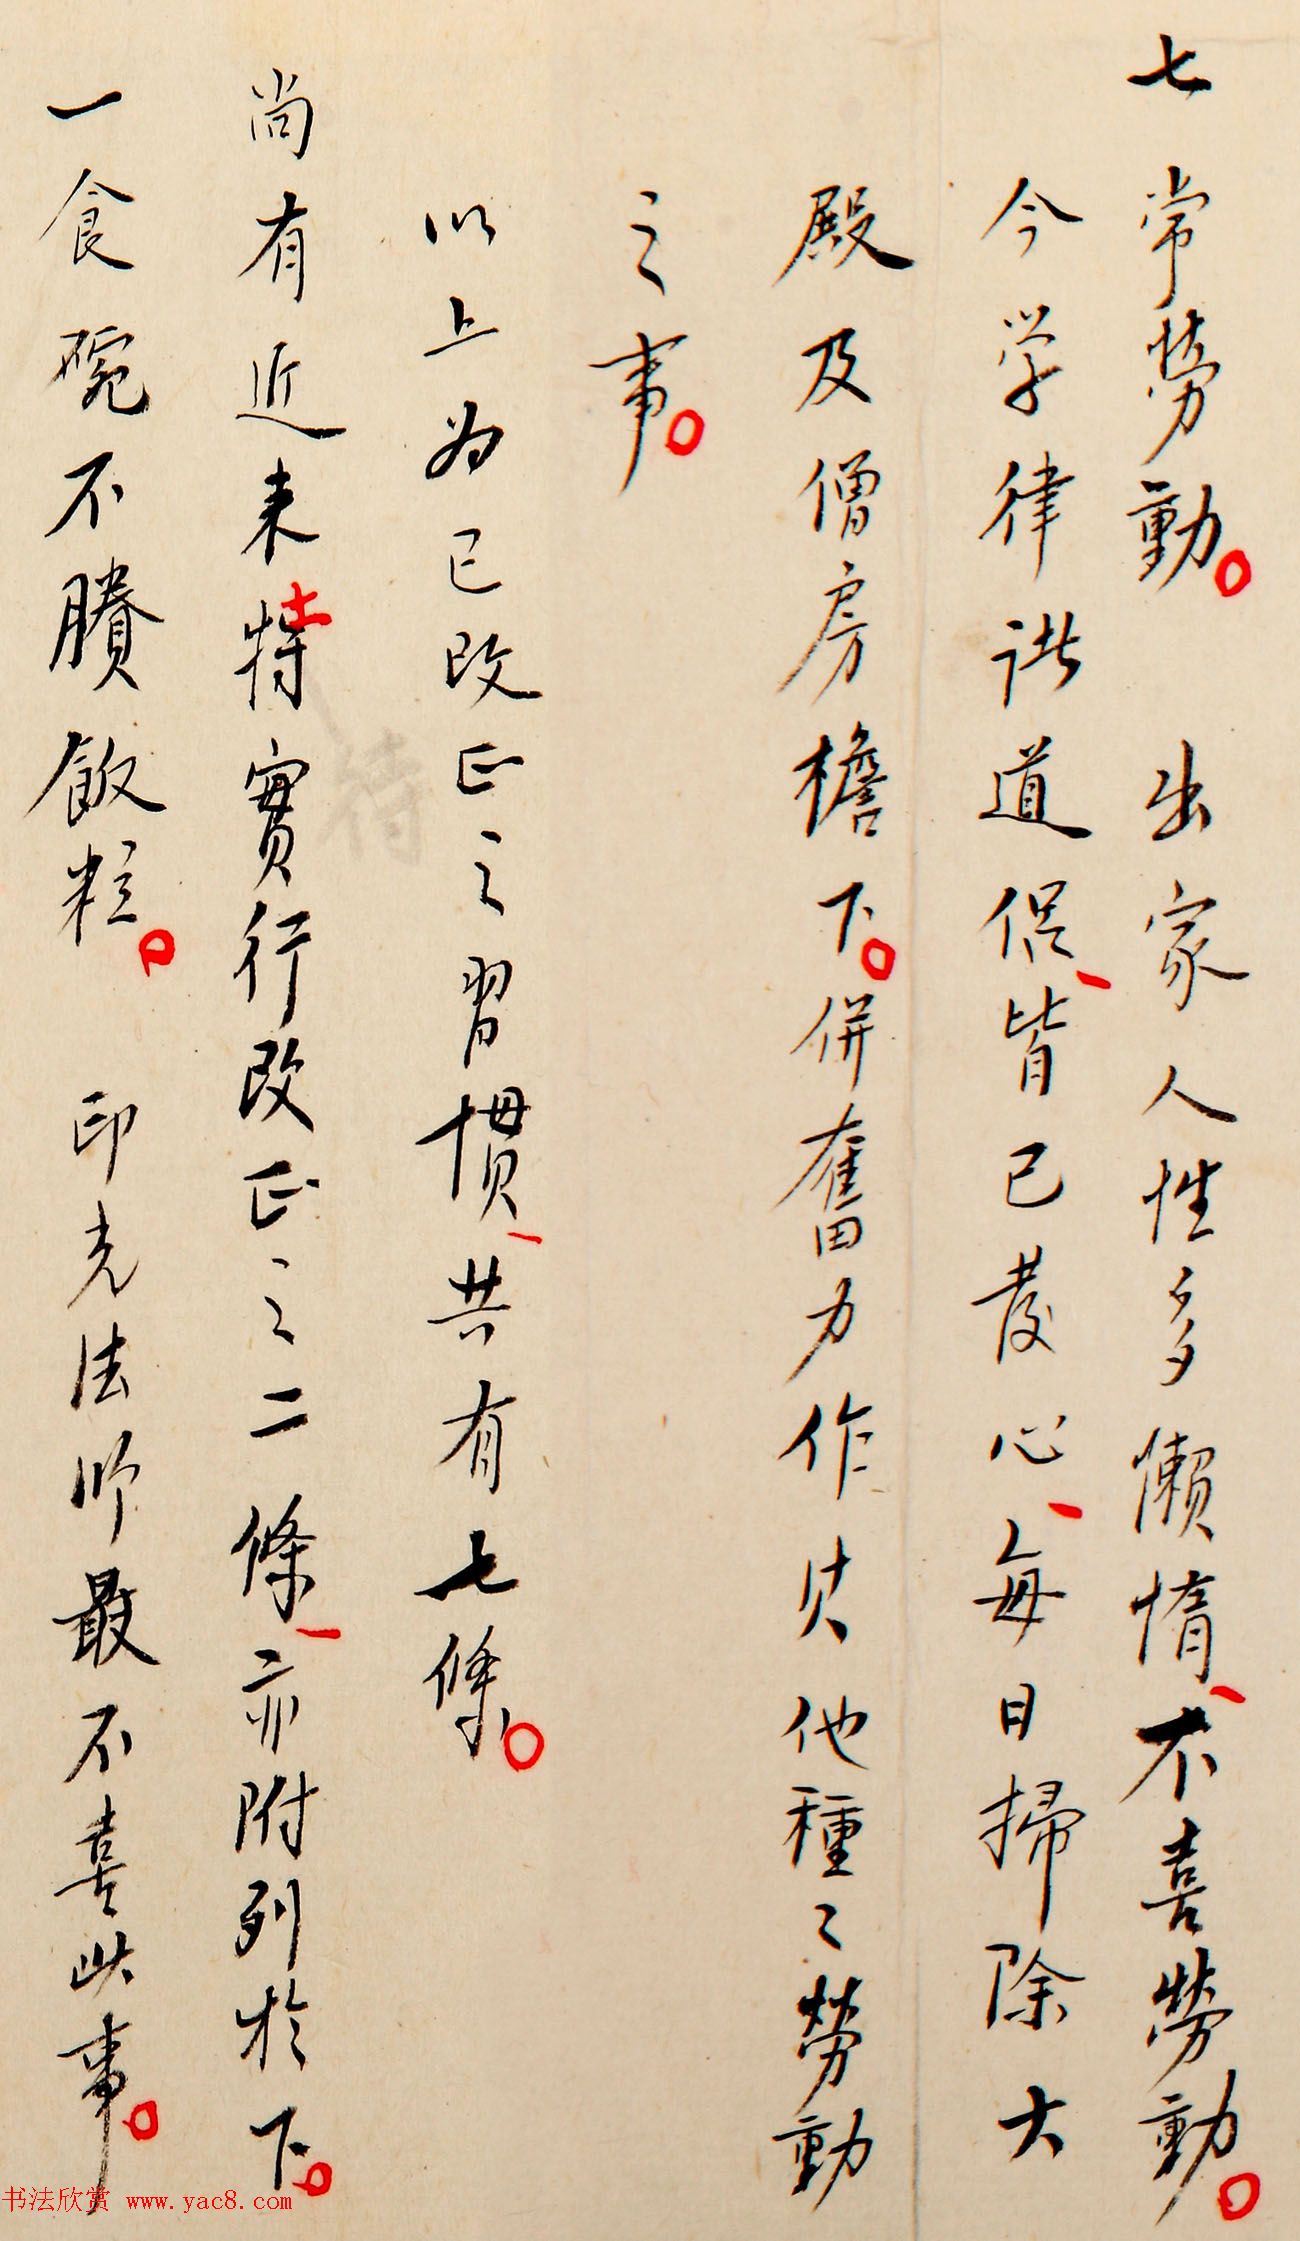 七 常勞動。 出家人性多懶惰、不喜勞動。
今学律諸道侶、皆已發心、每日掃除大
殿及僧房檐下。併奮力作其他種々勞動
之事。
以上为已改正之習慣、共有七條。
尚有近来特實行改正之二條、亦附列於下。
一食碗不賸飯粒。 印光法师最不喜此事。
待
书法欣赏 www.yac8.com